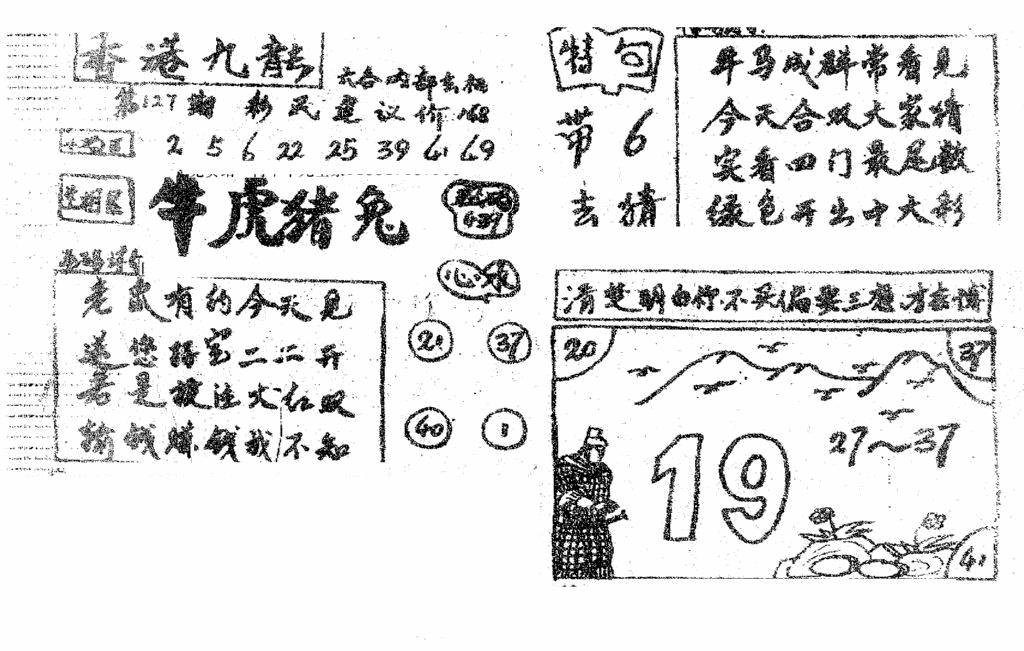 香港九龍
六合内部玄机
第127期 彩民建议价168
2 5 6 22 25 39 41 49
牛虎猪兔
老鼠有约今天见
送您好宝二二开
若是投注火红双
输钱赚钱我不知
心水
21 37
40 1
特句
带6
去猜
牛马成群常看见
今天合双大家猜
实看四门最尾数
绿色开出中大彩
清楚明白你不买偏要三想才去博
20 37
27~37
19
41